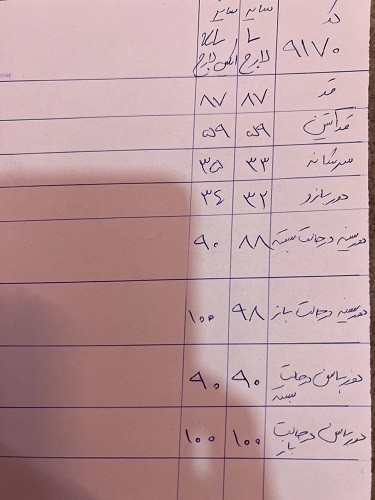 کد سایز سایز
۹۱۷۰ L XL
لارج اکس لارج
قد ۸۷ ۸۷
قد آستین ۵۹ ۵۹
سرشانه ۳۳ ۳۵
دور بازو ۳۲ ۳۴
دور سینه در حالت بسته ۸۸ ۹۰
دور سینه در حالت باز ۹۸ ۱۰۰
دور باسن در حالت ۹۰ ۹۰
بسته
دور باسن در حالت ۱۰۰ ۱۰۰
باز